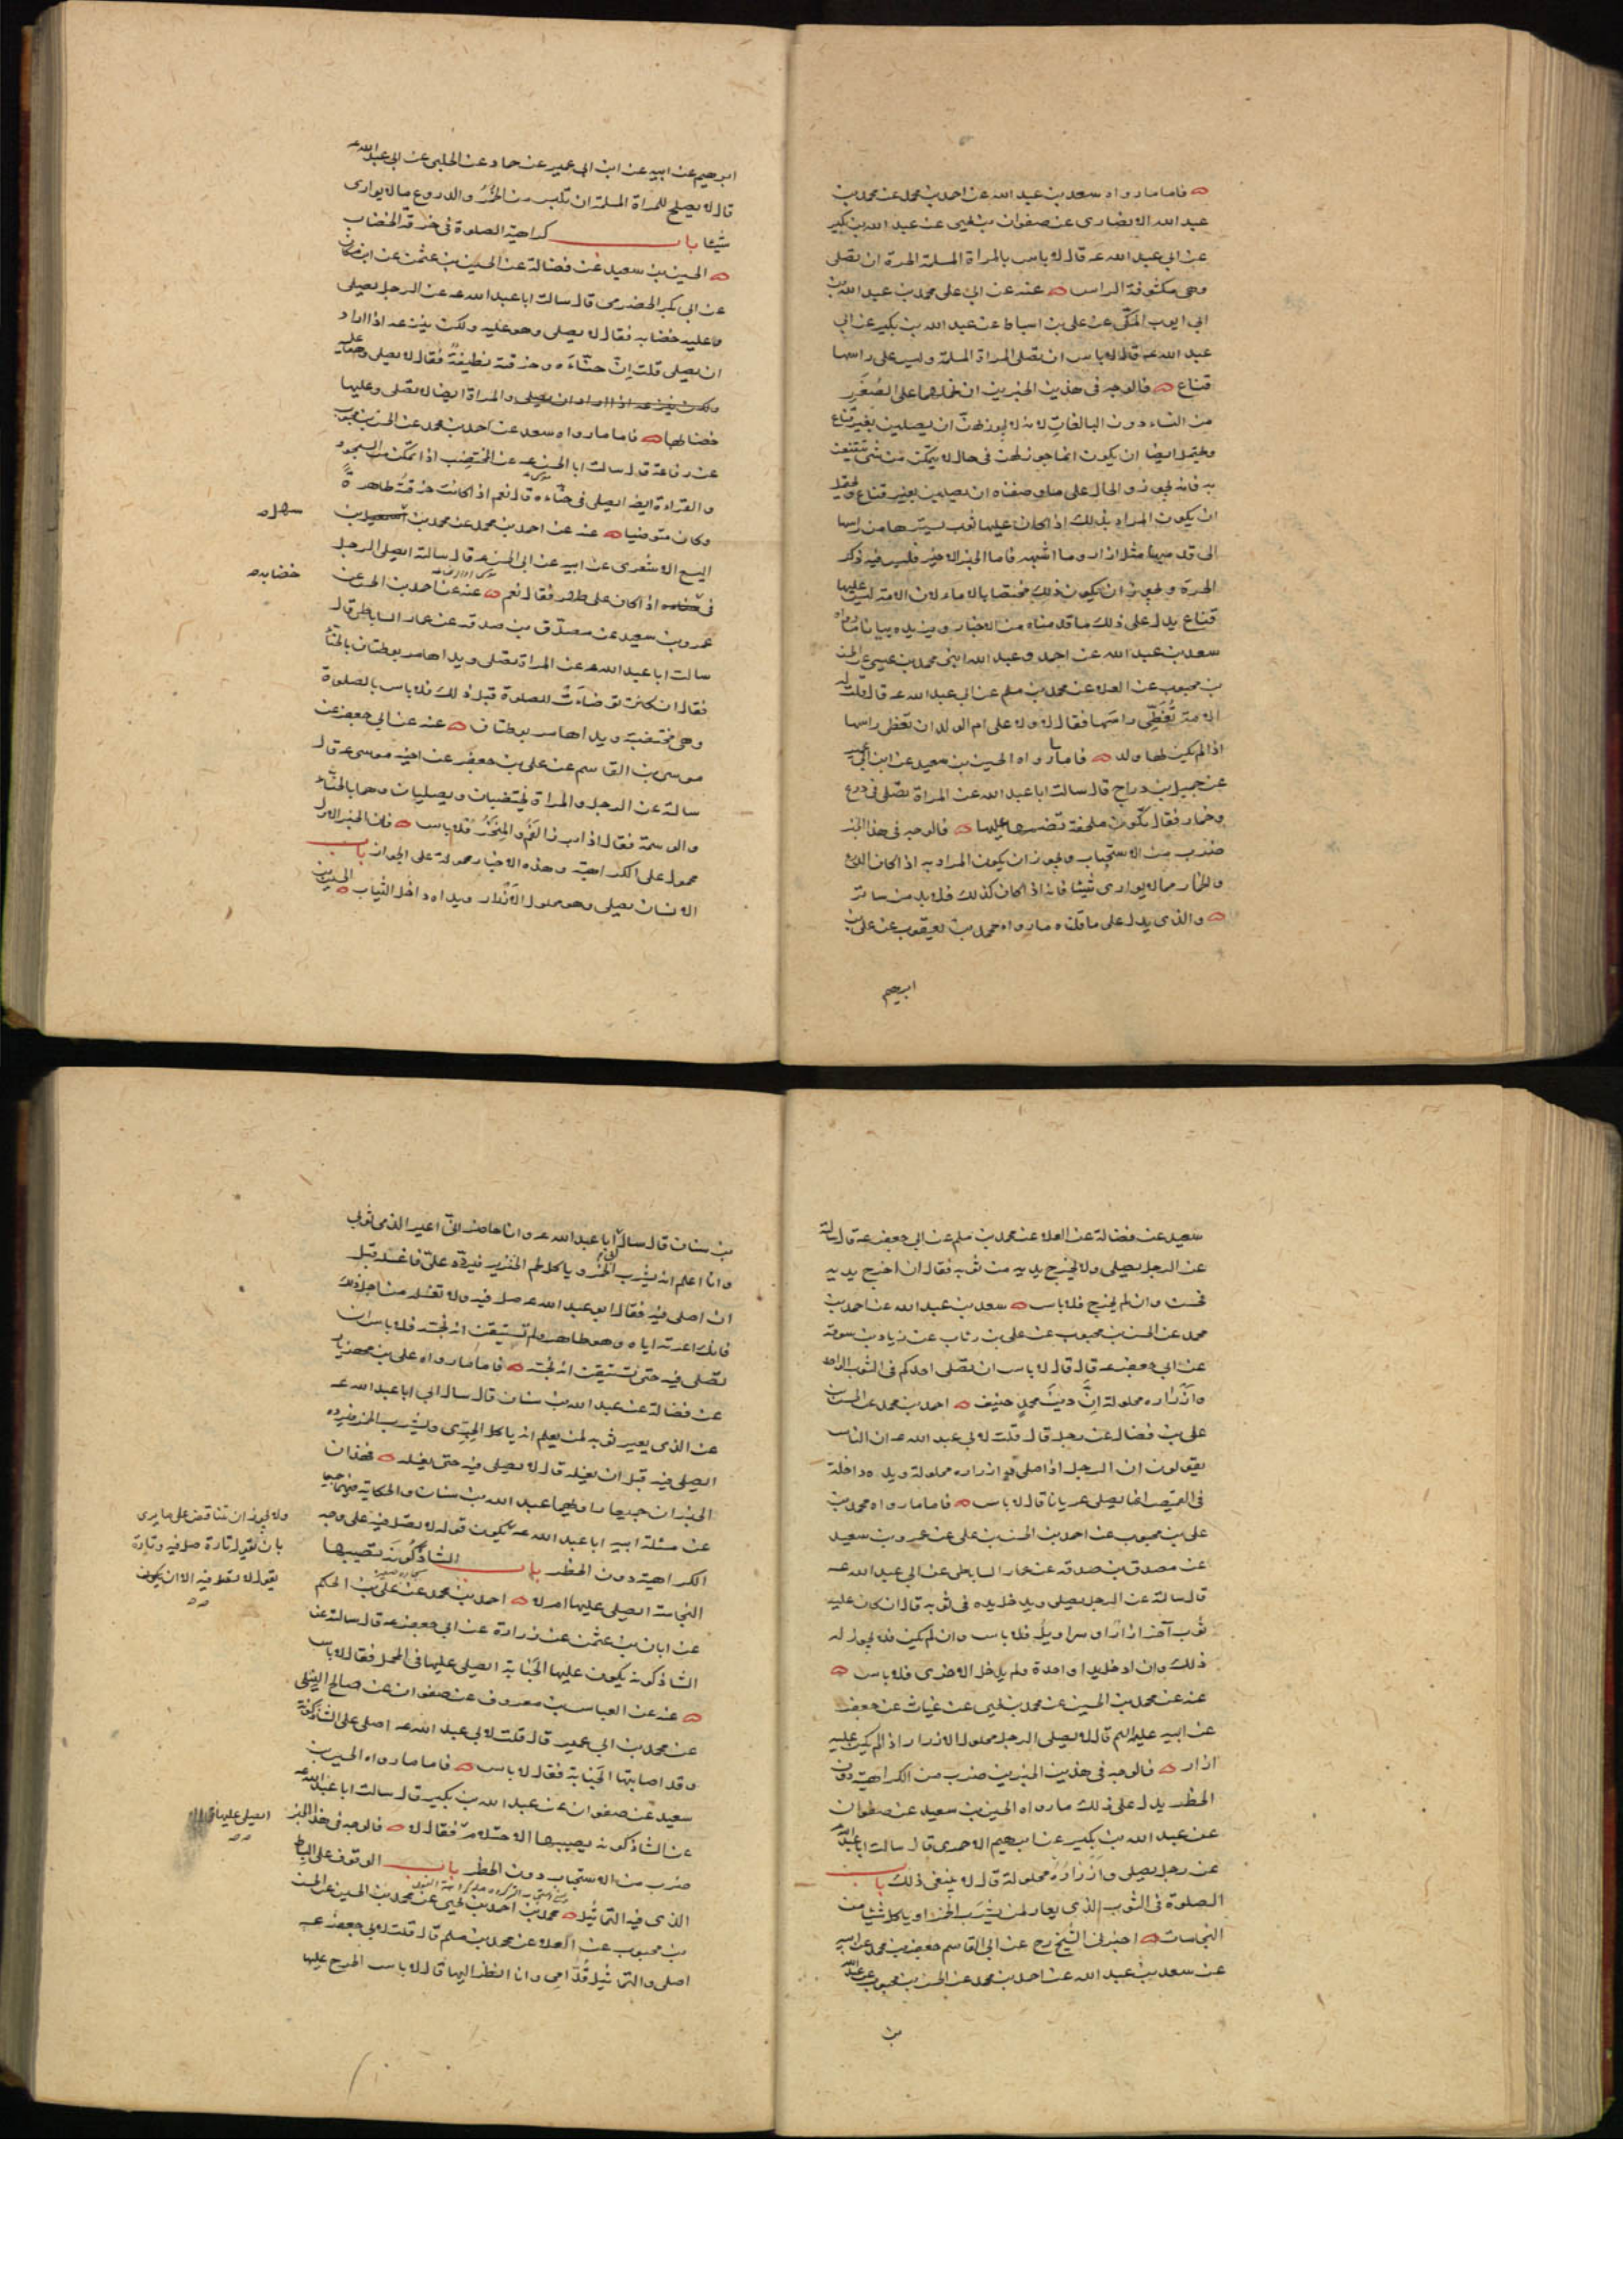 فاما ما رواه سعد بن عبد الله عن احمد بن محمد عن محمد بن
عبد الله الانصارى عن صفوان بن يحيى عن عبد الله بن بكير
عن ابي عبد الله عـ قال لا باس بالمراة المسلمة الحرة ان تصلى
وهى مكشوفة الراس عنه عن ابى على محمد بن عبد الله بن
ابى ايوب المكّى عن على بن اسباط عن عبد الله بن بكير عن ابى
عبد الله عـ قال لا باس ان تصلى المراة المسلمة وليس على راسها
قناع فالوجه فى هذين الخبرين ان نحملهما على الصُّغَرِ
من النساء دون البالغات لانه لا يجوز لهنّ ان يصلين بغير قناع
ويحتمل ايضا ان يكون انما جوز لهن فى حال لا يتمكّن من شئ يتقنعن
به فانه يجوز والحال على ما وصفناه ان يصلين بغير قناع ويحتمل
ان يكون المراد بذلك اذا كان عليها ثوب يسترها من راسها
الى قدميها مثل ازار وما اشبهه فاما الخبر الاخير فليس فيه ذكر
الحرة ويجوز ان يكون ذلك مختصا بالاماء لان الامة ليس عليها
قناع يدل على ذلك ما قدمناه من الاخبار ويزيده بيانا ما رواه
سعد بن عبد الله عن احمد وعبد الله ابنى محمد بن عيسى عن الحسن
بن محبوب عن العلا عن محمد بن مسلم عن ابى عبد الله عـ قال قلت له
الامة تُغَطّى راسَها فقال لا ولا على ام الولد ان تغطى راسها
اذا لم يكن لها ولد فاما ما رواه الحسين بن سعيد عن ابن ابى عمير
عن جميل بن دراج قال سالت ابا عبد الله عن المراة تصلّى فى درع
وخمار فقال يكون ملحفة تضمها عليها فالوجه فى هذا الخبر
ضرب من الاستحباب ويجوز ان يكون المراد به اذا كان الدرع
والخمار مما لا يوارى شيئا فانه اذا كان كذلك فلا بد من ساتر
والذى يدل على ما قلناه ما رواه محمد بن يعقوب عن على بن
ابرهيم
ابرهيم عن ابيه عن ابن ابى عمير عن حماد عن الحلبى عن ابى عبد الله عـ
قال لا يصلح للمراة المسلمة ان تلبس من الخُمُرِ والدروع ما لا يوارى
شيئا باب كراهية الصلوة فى خرقة الخضاب
الحسين بن سعيد عن فضالة عن الحسين بن عثمن عن ابن مسكان
عن ابى بكر الحضرمى قال سالت ابا عبد الله عـ عن الرجل يصلى
وعليه خضابه فقال لا يصلى وهو عليه ولكن ينزعه اذا اراد
ان يصلى قلت انّ حنّاءه وخرقته نظيفةٌ فقال لا يصلى وهو عليه
ولكن ينزعه اذا اراد ان يصلى والمراة ايضا لا تصلى وعليها
خضابها فاما ما رواه سعد عن احمد بن محمد عن الحسن بن محبوب
عن رفاعة قال سالت ابا الحسن عـ عن المختضب اذا تمكّن من السجود
والقراءة ايضا ايصلى فى حنّاءه قال نعم اذا كانت خرقته طاهرةً
وكان متوضيا عنه عن احمد بن محمد عن محمد بن اسمعيل بن
سهل
اليسع الاشعرى عن ابيه عن ابى الحسن عـ قال سالته ايصلى الرجل
خضابه
فى اذا كان على طهر فقال نعم عنه عن احمد بن الحسن عن
عمرو بن سعيد عن مصدّق بن صدقه عن عمار الساباطى قال
سالت ابا عبد الله عـ عن المراة تصلى ويداها مربوطتان بالحنّاء
فقال ان كانت توضّاَت للصلوة قبل ذلك فلا باس بالصلوة
وهى مختضبة ويداها مربوطتان عنه عن ابى جعفر عن
موسى بن القاسم عن على بن جعفر عن اخيه موسى عـ قال
سالته عن الرجل والمراة يختضبان ويصليان وهما بالحنّاء
والوسمة فقال اذا ابرزا الفَمَ والمِنخَرَ فلا باس فان الخبر الاول
محمول على الكراهية وهذه الاخبار محمولة على الجواز باب
الانسان يصلى وهو محلول الاَزرار ويداه داخل الثياب الحسين بن
سعيد عن فضالة عن العلا عن محمد بن مسلم عن ابى جعفر عـ قال سالته
عن الرجل يصلى ولا يخرج يديه من ثوبه فقال ان اخرج يديه
فحسن وان لم يخرج فلا باس سعد بن عبد الله عن احمد بن
محمد عن الحسن بن محبوب عن على بن رئاب عن زياد بن سوقة
عن ابى جعفر عـ قال قال لا باس ان يصلى احدكم فى الثوب الواحد
وازراره محلولة انّ دينَ محمدٍ حنيف احمد بن محمد عن الحسن بن
على بن فضال عن رجل قال قلت لابى عبد الله عـ ان الناس
يقولون ان الرجل اذا صلى وازراره محلولة ويده داخلة
فى القميص انما يصلى عريانا قال لا باس فاما ما رواه محمد بن
على بن محبوب عن احمد بن الحسن بن على عن عمرو بن سعيد
عن مصدق بن صدقه عن عمار الساباطى عن ابى عبد الله عـ
قال سالته عن الرجل يصلى ويدخل يده فى ثوبه قال ان كان عليه
ثوب آخر ازار او سراويل فلا باس وان لم يكن فلا يجوز له
ذلك وان ادخل يدا واحدة ولم يدخل الاخرى فلا باس
عنه عن محمد بن الحسين عن محمد بن يحيى عن غياث عن جعفر
عن ابيه عليهم السلم قال لا يصلى الرجل محلول الازرار اذا لم يكن عليه
ازار فالوجه فى هذين الخبرين ضرب من الكراهية دون
الحظر يدل على ذلك ما رواه الحسين بن سعيد عن صفوان
عن عبد الله بن بكير عن ابرهيم الاحمرى قال سالت ابا عبد الله
عن رجل يصلى وازرارُه محلولة قال لا ينبغى ذلك باب
الصلوة فى الثوب الذى يعار لمن يشرَب الخمر او ياكل شيئا من
النجاسات اخبرنى الشيخ رح عن ابى القاسم جعفر بن محمد عن ابيه
عن سعد بن عبد الله عن احمد بن محمد عن الحسن بن محبوب عن عبد الله
بن
بن سنان قال سال ابى ابا عبد الله عـ وانا حاضر انّى اعير الذمى ثوبى
وانا اعلم انه يشرب الخمر وياكل لحم الخنزير فيردّه علىّ فاغسله قبل
ان اصلى فيه فقال ابو عبد الله عـ صل فيه ولا تغسله من اجل ذلك
فانك اعرته اياه وهو طاهر ولم تستيقن انه نجسه فلا باس ان
تصلى فيه حتى تستيقن انه نجسه فاما ما رواه على بن مهزيار
عن فضالة عن عبد الله بن سنان قال سال ابى ابا عبد الله عـ
عن الذى يعير ثوبه لمن يعلم انه ياكل الجِرّى ويشرب الخمر فيرده
ايصلى فيه قبل ان يغسله قال لا يصلى فيه حتى يغسله فهذان
الخبران جميعا راويهما عبد الله بن سنان والحكاية فيهما جميعا
عن مسئلة ابيه ابا عبد الله عـ يكون قوله لا تصلّ فيه على وجه
ولا يجوز ان تتناقض على ما يرى
بان يقول تارة صل فيه وتارة
يقول لا تصلّ فيه الا ان يكون
الكراهية دون الحظر باب الشاذكُونَة تصيبها
النجاسة ايصلى عليها ام لا احمد بن محمد عن على بن الحكم
عن ابان بن عثمن عن زرارة عن ابى جعفر عـ قال سالته عن
الشاذكونة يكون عليها الجَنابة ايصلى عليها فى المحمل فقال لا باس
عنه عن العباس بن معروف عن صفوان عن صالح النيلى
عن محمد بن ابى عمير قال قلت لابى عبد الله عـ اصلى على الشاذكونة
وقد اصابتها الجَنابة فقال لا باس فاما ما رواه الحسين بن
سعيد عن صفوان عن عبد الله بن بكير قال سالت ابا عبد الله عـ
ايصلى عليها
عن الشاذكونة يصيبها الاحتلام فقال لا فالوجه فى هذا الخبر
ضرب من الاستحباب دون الحظر باب الوقوف على البساط
الذى فيه التماثيل محمد بن احمد بن يحيى عن محمد بن الحسين عن الحسن
بن محبوب عن العلا عن محمد بن مسلم قال قلت لابى جعفر عـ
اصلى والتماثيل قُدّامى وانا انظر اليها قال لا باس اطرح عليها